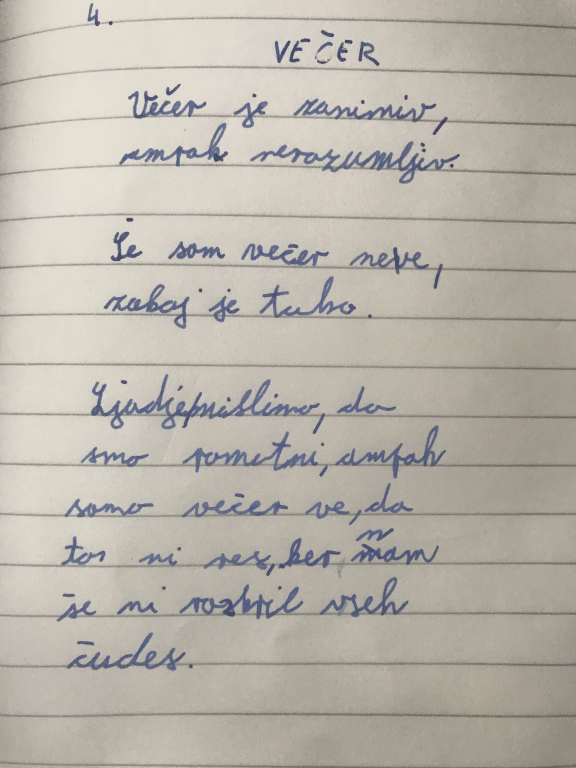 4.
VEČER
Večer je zanimiv,
ampak nerazumljiv.
Še sam večer neve,
zakaj je tako.
Ljudje mislimo, da
smo pametni, ampak
samo večer ve, da
to ni res, ker nam
še ni razkril vseh
čudes.